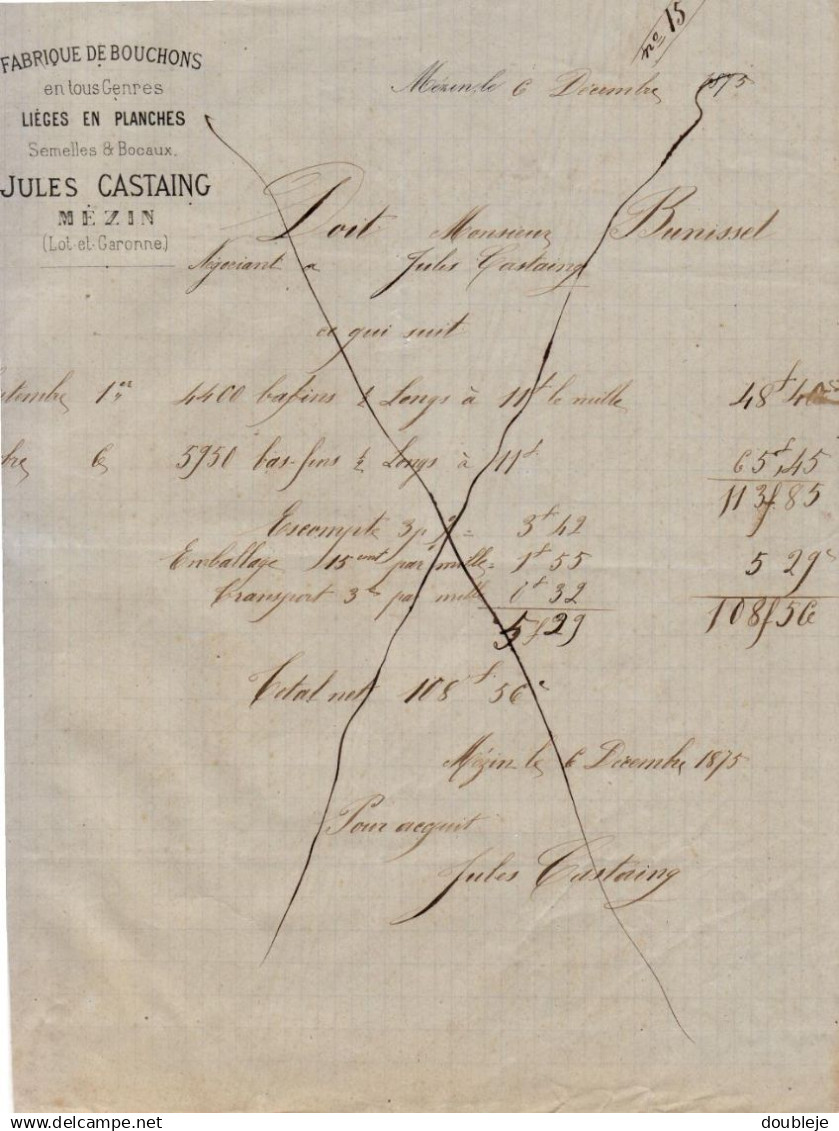 nº 15
FABRIQUE DE BOUCHONS
en tous Genres
LIÈGES EN PLANCHES
Semelles & Bocaux.
JULES CASTAING
MÉZIN
(Lot-et-Garonne)
Mézin, le 6 Décembre 1875
Doit Monsieur Bunissel
Négociant a Jules Castaing
ce qui suit
1er 4400 bas fins ½ Longs à 11f le mille 48f 40
6 5950 bas-fins ½ Longs à 11f 65f 45
113f 85
Escompte 3 p % = 3f 42
Emballage 15 cent par mille = 1f 55 5 29c
Transport 3c par mille 0f 32 108f 56
5f 29
Total net 108f 56c
Mézin le 6 Décembre 1875
Pour acquit
Jules Castaing
www.delcampe.net
doubleje